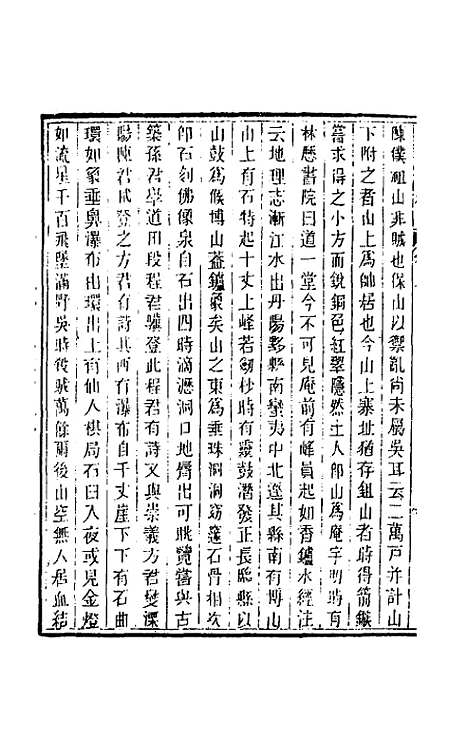 陳僕祖山非賊也保山以禦亂尚未屬吳耳云二萬戸并計山
下附之者山上爲帥居也今山上寨址猶存鉏山者時得箭鏃
嘗求得之小方而銳銅色紅翠隱然土人卽山爲庵宇明時有
林歷書院曰道一堂今不可見庵前有峰員起如香鑪水經注
云地理志漸江水出丹陽黟縣南蠻夷中北逕其縣南有博山
山上有石特起十丈上峰若劒杪時有靈鼓潛發正長臨縣以
山鼓爲候博山蓋鑪象矣山之東爲垂珠洞洞窈窕石骨相次
卽石刻佛像泉自石出四時滴瀝洞口地齊出可眺覽嘗與古
築孫君學道田段程君驤登此程君有詩又與崇義方君燮潭
陽陳君斌登之方君有詩其西有瀑布自千丈崖下下有石曲
環如象垂鼻瀑布出環出上有仙人棋局石臼入夜或見金燈
如流星千百飛墜滿野吳時後號萬餘爾後山空無人居血結